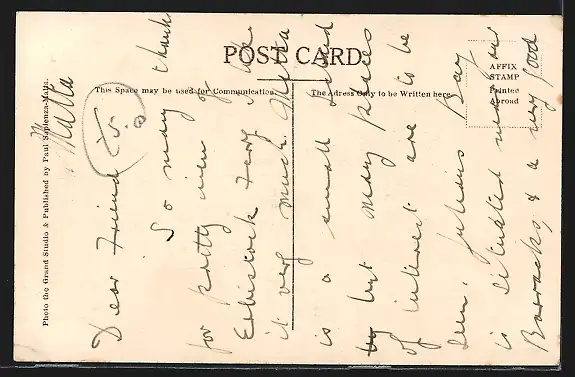 POST CARD.
This Space may be used for Communication.
The Adress Only to be Written here
AFFIX
STAMP
Printed
Abroad
Photo the Grand Studio & Published by Paul Sapienza-Malta.
Malta
Dear Friend
So many thanks
for pretty view of
Ferry I like
it very much Malta
is a small island
but many places
of interest are to be
seen. Julians Bay
is situated near our
Barracks, & a very good